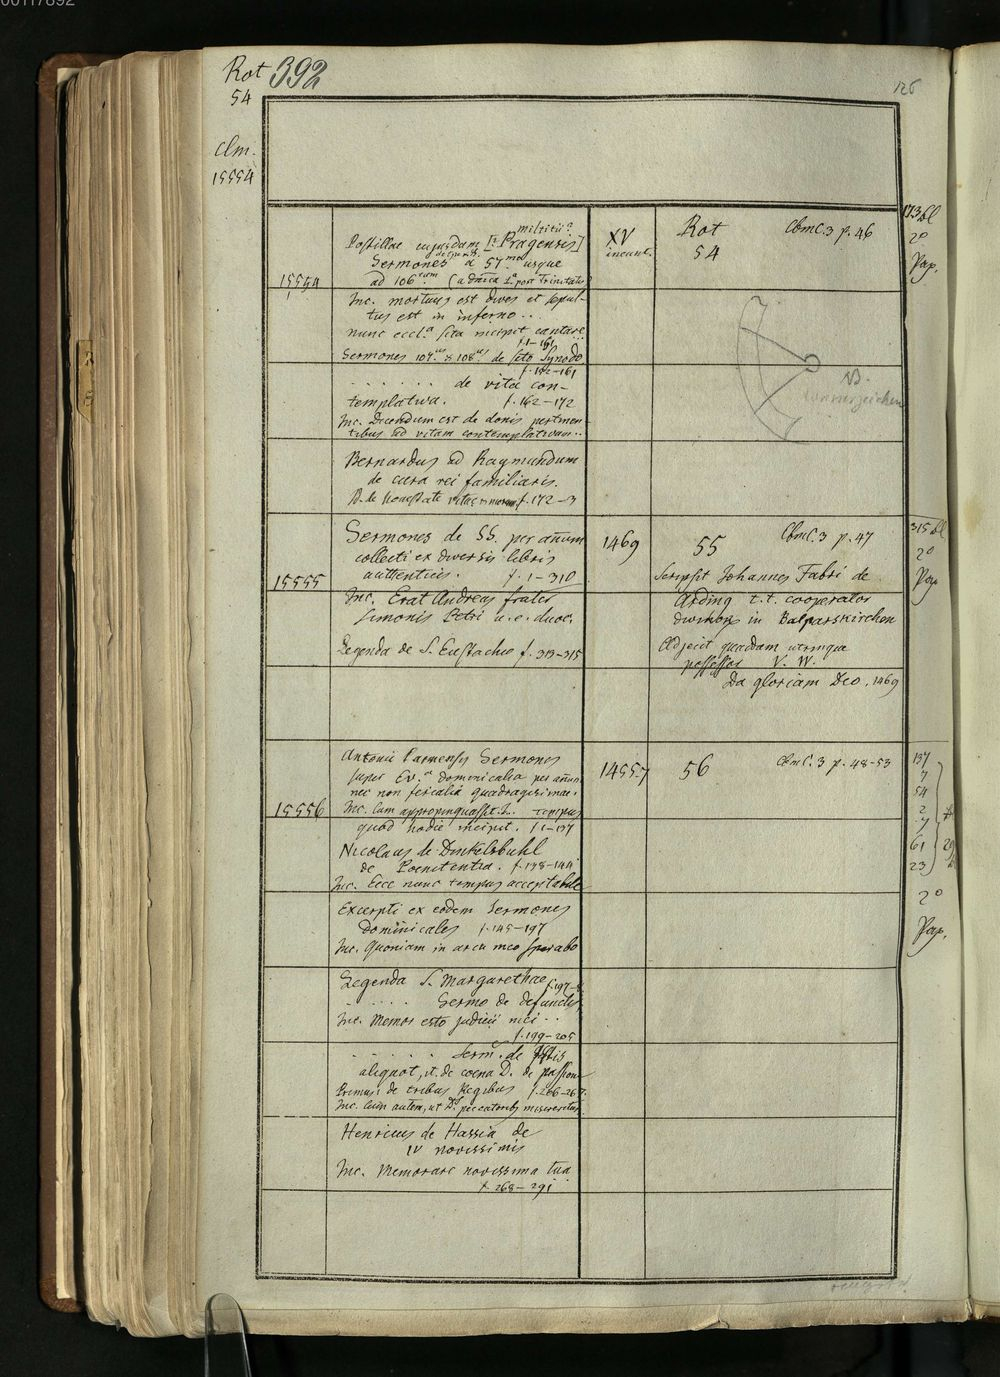 00117892
Rot 392
54
126
Clm.
15554
173 bl
2°
Pap.
militii?
Postillae cujusdam [? Pragensis]
Sermones de tpore a 57mo usque
15554
ad 106tum (a dnica 1a post Trinitatis
XV
ineunt.
Rot
54
Cbm C. 3 p. 46
Inc. mortuus est dives et sepul-
tus est in inferno ..
nunc eccla sta incipit cantare
f. 1-161
Sermones 107us & 108us de sto Synodo
f. 162-161
. . . . . . . de vita con-
templativa. f. 162-172
Inc. Dicendum est de donis pertinen-
tibus ad vitam contemplativam..
NB.
Bernardus ad Raymundum
de cura rei familiaris.
D. de honestate vitae f. 172-3
Sermones de SS. per annum
collecti ex diversis libris
authenticis. f. 1-310
15555
1469
55
Cbm C. 3 p. 47
315 bl
2°
Pap
Inc. Erat Andreas frater
Simonis Petri u. e. duoc.
Legenda de S. Eustachio f. 313-315
Scripsit Johannes Fabri de
Arding t.t. cooperator
divinorum in Balparskirchen
Adjecit quaedam utrinque
possessor V. W.
Da gloriam Deo. 1469
Antonii Parmensis Sermones
super Ev.a dominicalia per annum
nec non ferialia quadragesimae.
15556
Inc. Cum appropinquasset I. tempus
quod hodie incipit. f. 1-137
1455.7
56
Cbm C. 3 p. 48-53
137
7
54
2
7
61
23
2°
Pap.
Nicolaus de Dinkelsbuhl
de Poenitentia. f. 138-144
Inc. Ecce nunc tempus acceptabile
Excerpti ex eodem Sermones
dominicales f. 145-197
Inc. Quoniam in arcu meo sperabo
Legenda S. Margarethae f. 197-8
. . . . . Sermo de defunctis
Inc. Memor esto judicii mei ..
f. 199-205
. . . . . . Serm. de festis
aliquot, it. de coena D. de passione
Primus: de tribus Regibus f. 206-267.
Inc. Cum autem, ut Ds peccatoribus misereretur
Henricus de Hassia de
IV novissimis
Inc. Memorare novissima tua
f. 268-291